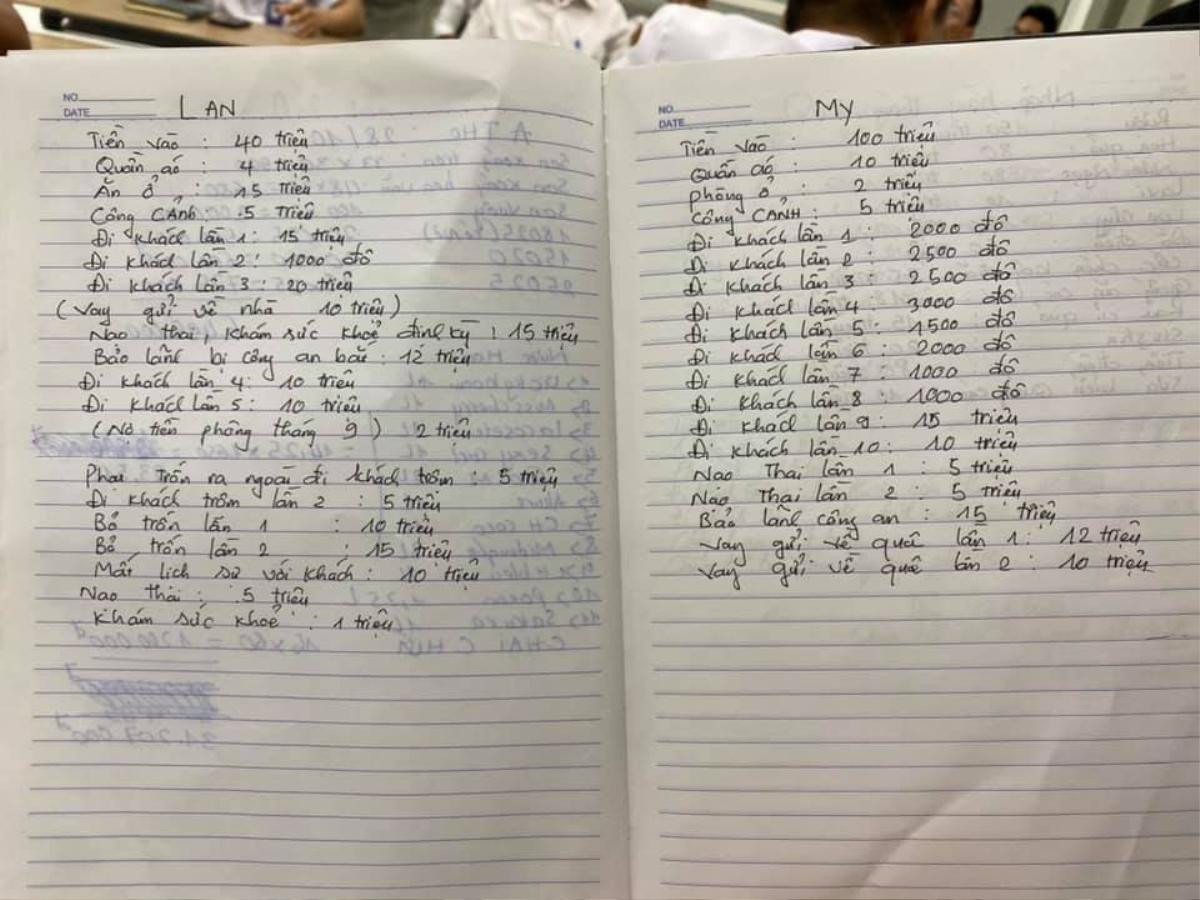 NO.
DATE
LAN
Tiền vào : 40 triệu
Quần áo : 4 triệu
Ăn ở : 15 triệu
Công CẢNh : 5 triệu
Đi khách lần 1 : 15 triệu
Đi khách lần 2 : 1000 đô
Đi khách lần 3 : 20 triệu
(Vay gửi về nhà 10 triệu)
Nạo thai, khám sức khoẻ định kỳ : 15 triệu
Bảo lãnh bị công an bắt : 12 triệu
Đi khách lần 4 : 10 triệu
Đi khách lần 5 : 10 triệu
(Nợ tiền phòng tháng 9) 2 triệu
Phai trốn ra ngoài đi khách trộm : 5 triệu
Đi khách trộm lần 2 : 5 triệu
Bỏ trốn lần 1 : 10 triệu
Bỏ trốn lần 2 : 15 triệu
Mất lịch sự với khách : 10 triệu
Nạo thai : 5 triệu
Khám sức khoẻ : 1 triệu
NO.
DATE
MY
Tiền vào : 100 triệu
Quần áo : 10 triệu
phòng ở : 2 triệu
Công CẢNH : 5 triệu
Đi khách lần 1 : 2000 đô
Đi khách lần 2 : 2500 đô
Đi khách lần 3 : 2500 đô
Đi khách lần 4 : 3000 đô
Đi khách lần 5 : 1500 đô
Đi khách lần 6 : 2000 đô
Đi khách lần 7 : 1000 đô
Đi khách lần 8 : 1000 đô
Đi khách lần 9 : 15 triệu
Đi khách lần 10 : 10 triệu
Nạo Thai lần 1 : 5 triệu
Nạo Thai lần 2 : 5 triệu
Bảo lãnh công an : 15 triệu
Vay gửi về quê lần 1 : 12 triệu
Vay gửi về quê lần 2 : 10 triệu